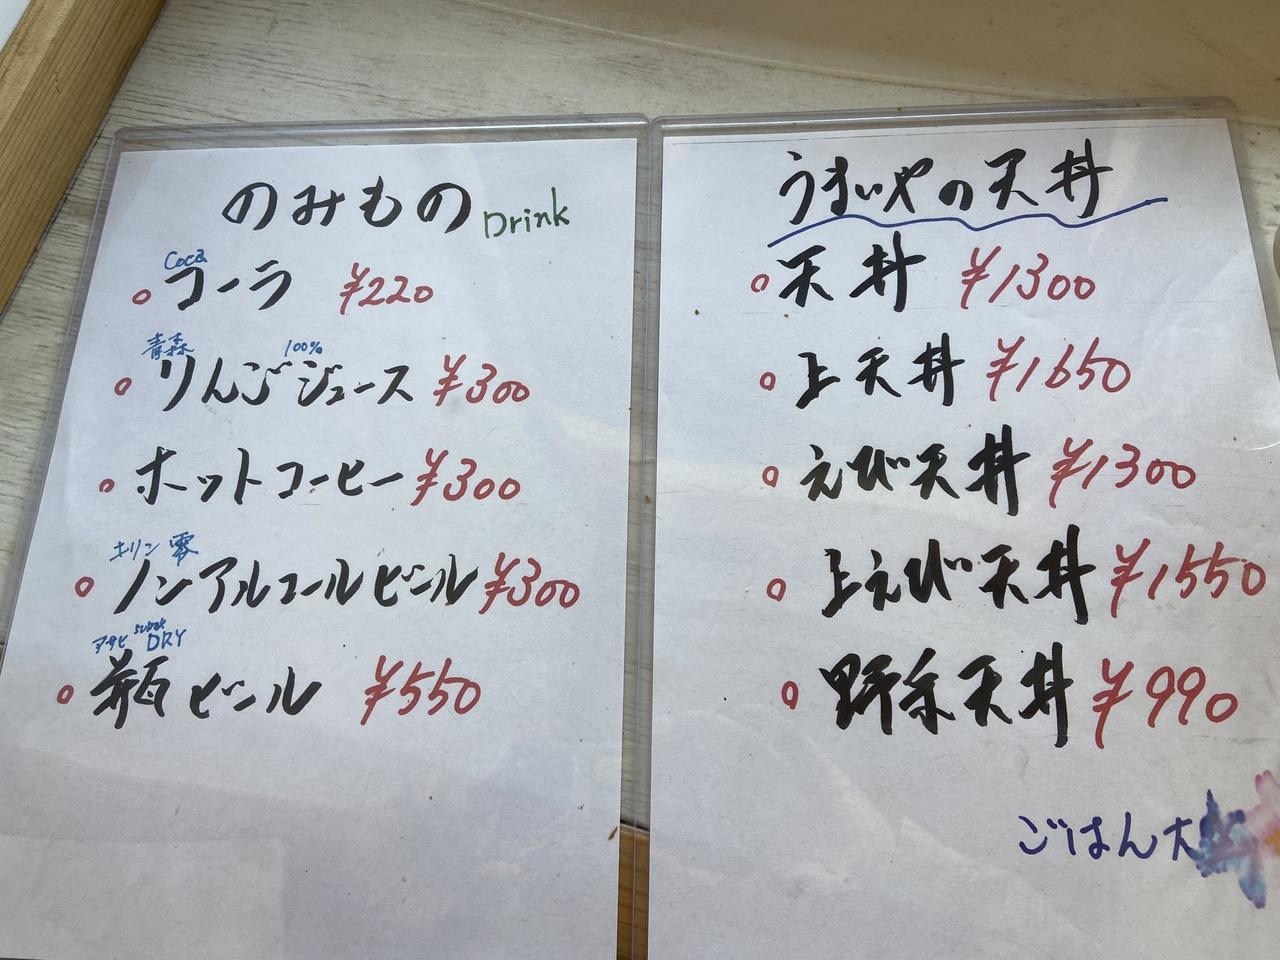 のみもの Drink
Coca
コーラ ¥220
青森 100%
りんごジュース ¥300
ホットコーヒー ¥300
キリン 零
ノンアルコールビール ¥300
アサヒ super DRY
瓶ビール ¥550
うまいやの天丼
天丼 ¥1300
上天丼 ¥1650
えび天丼 ¥1300
上えび天丼 ¥1550
野菜天丼 ¥990
ごはん大